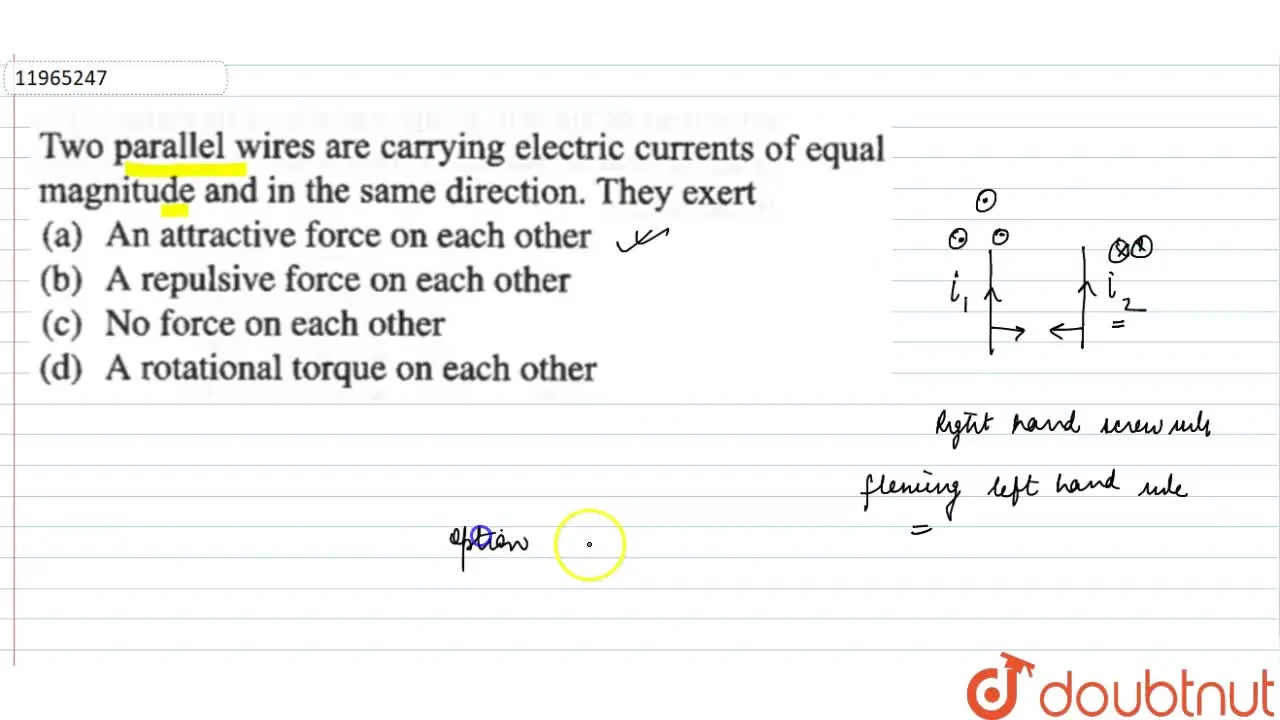 11965247
Two parallel wires are carrying electric currents of equal
magnitude and in the same direction. They exert
(a) An attractive force on each other
(b) A repulsive force on each other
(c) No force on each other
(d) A rotational torque on each other
i1 i2
Right hand screw rule
fleming left hand rule
option
doubtnut